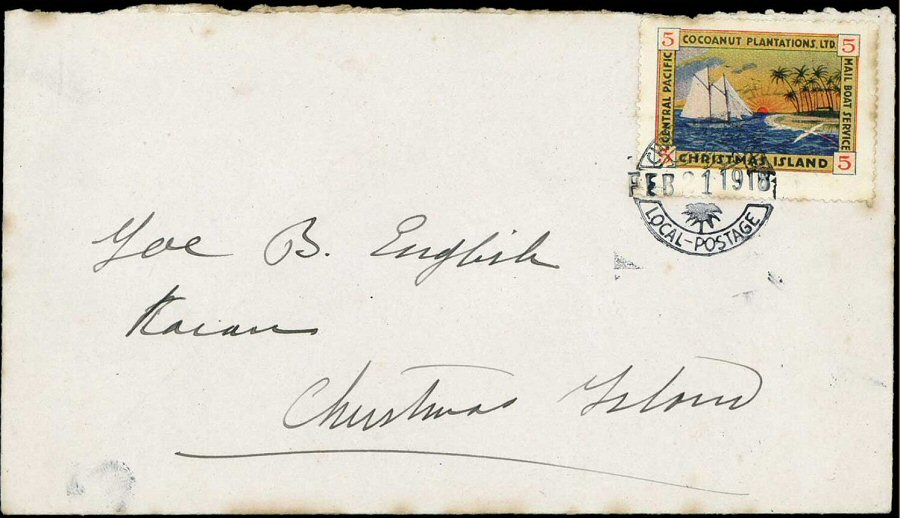 5 COCOANUT PLANTATIONS, LTD. 5
CENTRAL PACIFIC
MAIL BOAT SERVICE
5 CHRISTMAS ISLAND 5
FEB 21 1918
LOCAL-POSTAGE
Joe B. English
Christmas Island